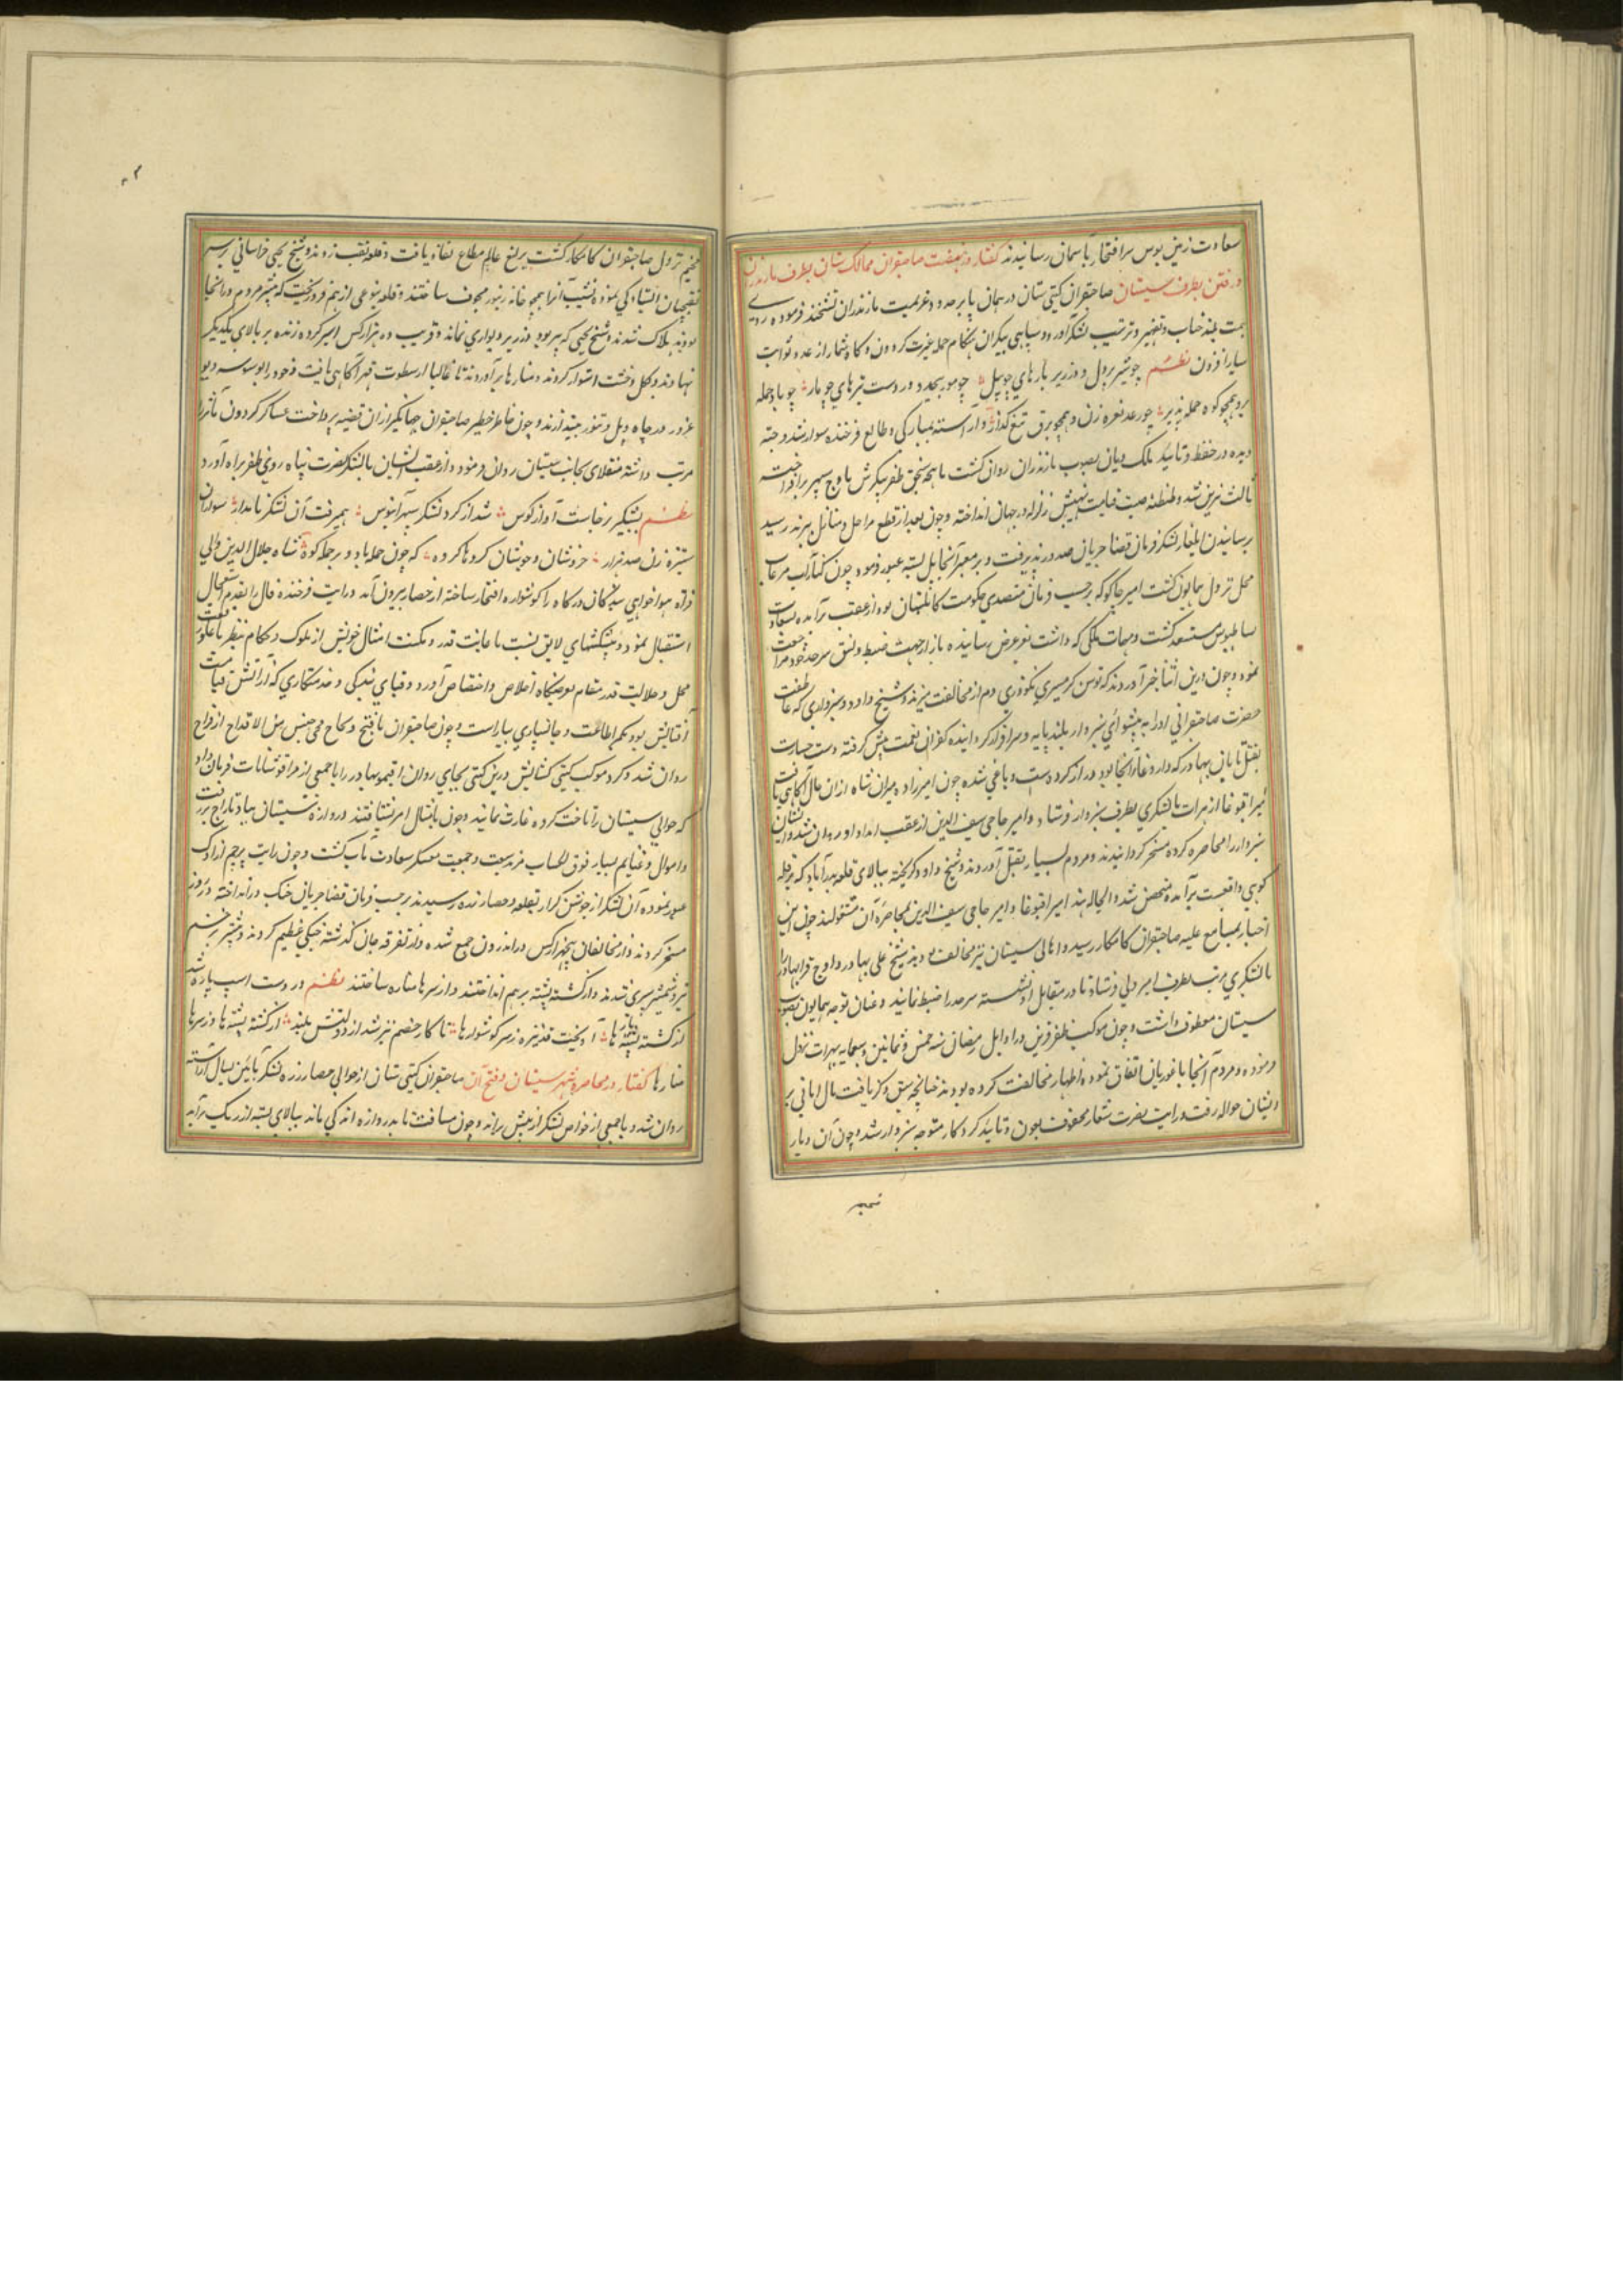 سعادت زمین بوس سر افتخار بآسمان رسانیدند گفتار در نهضت صاحبقران ممالک ستان بطرف مازندران
و رفتن بطرف سیستان صاحبقران کیتی ستان در همان پاییز صدود عزیمت مازندران فرموده روی
همت بلند جناب بتجهیز و ترتیب لشکر آورد و سپاهی بیکران هنکام حمله غیرت کردون و کاه شمار از عدد ثوابت
سیار افزون نظم چو شیر بر دل و در زیر بارهای چو پیل چو مور بیحد و در دست تیرهای چو مار چو باد حمله
بر و همچو کوه حمله پذیر چو رعد نعره زن و همچو برق تیغ گذار و آراسته بمبارکی و طالع فرخنده سوار شد و
در حفظ و تأیید ملک دیان بصوب مازندران روان گشت ماهچه سنجق ظفر پیکرش باوج سپهر برافراخت
ثالث نیرین شد و طنطنه صیت زلزله در جهان انداخته و چون بعد از قطع مراحل و منازل رسید
برسانیدن ایلغار لشکر فرمان قضا جریان صدور پذیرفت و بر معبر آنجا پل بسته عبور فرمود چون کنار آب مرغاب
محل نزول همایون گشت امیر چاکو که برحسب فرمان متصدی حکومت کابلستان بود از عقب برآمده بسعادت
بساط بوس مستسعد گشت و مهمات ملکی که داشت بعرض رسانیده باز از جهت ضبط و نسق سرحد خود مراجعت
نمود و چون درین اثنا خبر آوردند که تومن کرمسیری نکودری دم از مخالفت میزند و شیخ داود سبزواری که عاطفت
حضرت صاحبقرانی او را به پیشوائی سبزوار بلند پایه و سرافراز کردانیده کفران نعمت پیش گرفته دست جسارت
بقتل تابان بهادر که داروغا آنجا بود دراز کرده است و یاغی شده چون امیرزاده میران شاه از آن حال آکاهی یافت
امیر اقبوغا از هرات با لشکری بطرف سبزوار فرستاد و امیر حاجی سیف الدین از عقب امداد او روان شد و ایشان
سبزوار را محاصره کرده مسخر کردانیدند و مردم بسیار بقتل آوردند و شیخ داود گریخته ببالای قلعه بدرآباد که بر قله
کوهی واقعست برآمده متحصن شد و الحاله هذه امیر اقبوغا و امیر حاجی سیف الدین بمحاصره آن مشغولند چون این
اخبار بمسامع علیه صاحبقران کامکار رسید و اهالی سیستان نیز مخالفت شیخ علی بهادر و اوج قرا بهادر را
با لشکری مرتب بطرف امیر ولی فرستاد تا در مقابل او نشسته سرحد را ضبط نمایند و عنان توجه همایون بصوب
سیستان معطوف داشت و چون موکب ظفر قرین در اوایل رمضان سنه خمس و ثمانین و سبعمایه بهرات نزول
فرموده و مردم آنجا با غوریان اتفاق نموده اظهار مخالفت کرده بودند چنانچه سبق ذکر یافت مال امانی بر
ایشان حواله رفت و رایت نصرت شعار محفوف بعون و تایید کردکار متوجه سبزوار شد و چون آن دیار
مخیم
مخیم نزول صاحبقران کامکار گشت یرلیغ عالم مطاع نفاذ یافت و قلعه نقب زدند و شیخ یحیی خراسانی بر سر
نقبچیان ایستادگی نموده شیب آنرا همچو خانه زنبور مجوف ساختند و قلعه بنوعی از هم فرو ریخت که بیشتر مردم در آنجا
بودند هلاک شدند و شیخ یحیی که پیر بود در زیر دیواری نماند و قریب دو هزار کس اسیر کرده زنده بر بالای یکدیگر
نهادند و بکل و خشت استوار کردند و منارها برآوردند تا عالمیان از سطوت قهر آکاهی یافت و خود را بوسوسه دیو
غرور در چاه ویل و تنور نیندازند و چون خاطر خطیر صاحبقران جهانگیر از ان قضیه پرداخت عساکر گردون مآثر را
مرتب داشته منقلای بجانب سیستان روان فرمود و از عقب ایشان با لشکر نصرت پناه روی ظفر براه آورد
نظم بشبگیر برخاست آواز کوس شد از گرد لشکر سپهر آبنوس همیرفت آن لشکر نامدار سواران
ستیزه زن صد هزار خروشان و جوشان گروها کروه که چون حمله باد و بر جمله کوه شاه جلال الدین والی
فراه هواخواهی بندگان درکاه را گوشواره افتخار ساخته از حصار بیرون آمد و رایت فرخنده فال را بقدم استعجال
استقبال نمود و پیشکشهای لایق نسبت با غایت قدر و مکنت امثال خویش از ملوک و حکام بنظر علو
محل و جلالت قدر مقام بعرضگاه اخلاص و اختصاص آورد و قبای بندگی و خدمتکاری که آرایش
بود بکمر اطاعت و جانسپاری بیاراست و چون صاحبقران
روان شد و گرد موکب کیتی کشایش اقتمور بهادر را با جمعی از قوشونات فرمان داد
که حوالی سیستان را تاخت کرده غارت نمایند و چون بامتثال امر بشتافتند دروازه سیستان بباد تاراج بر رفت
و اموال و غنایم بسیار فوق الحساب مزید سعت و جمعیت معسکر سعادت مآب گشت و چون رایت پرچم از اوک
عبور نموده آن لشکر از جوشن گزار بقلعه و حصار زره رسیدند برحسب فرمان قضا جریان جنک در انداخته در روز
مسخر کردند و از مخالفان پنجهزار کس در اندرون جمع شده و از تفرقه جان گذشته جنگی عظیم کردند و بیشتر بزخم
تیر و شمشیر سپری شدند و از کشته پشته بر هم انداختند و از سرها مناره ساختند نظم در دست اسپ پاره شد
از کشته پشته ها آویخت قد نیزه ز سر گوشوارها تا کار خصم تیز شد از دولتش بلند از کشته پشته ها و ز سرها
منارها گفتار در محاصره شهر سیستان و فتح آن صاحبقران کیتی ستان از حوالی حصار زره لشکر بآئین یسال آراسته
روان شد و با جمعی از خواص لشکر از پیش براند و چون مسافت تا بدروازه اندکی ماند ببالای پشته از ریک برآمد